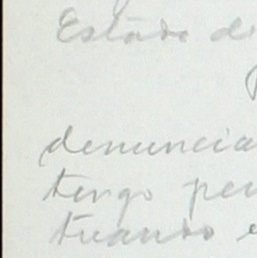 Estado de
denuncia
tengo per
tuando e